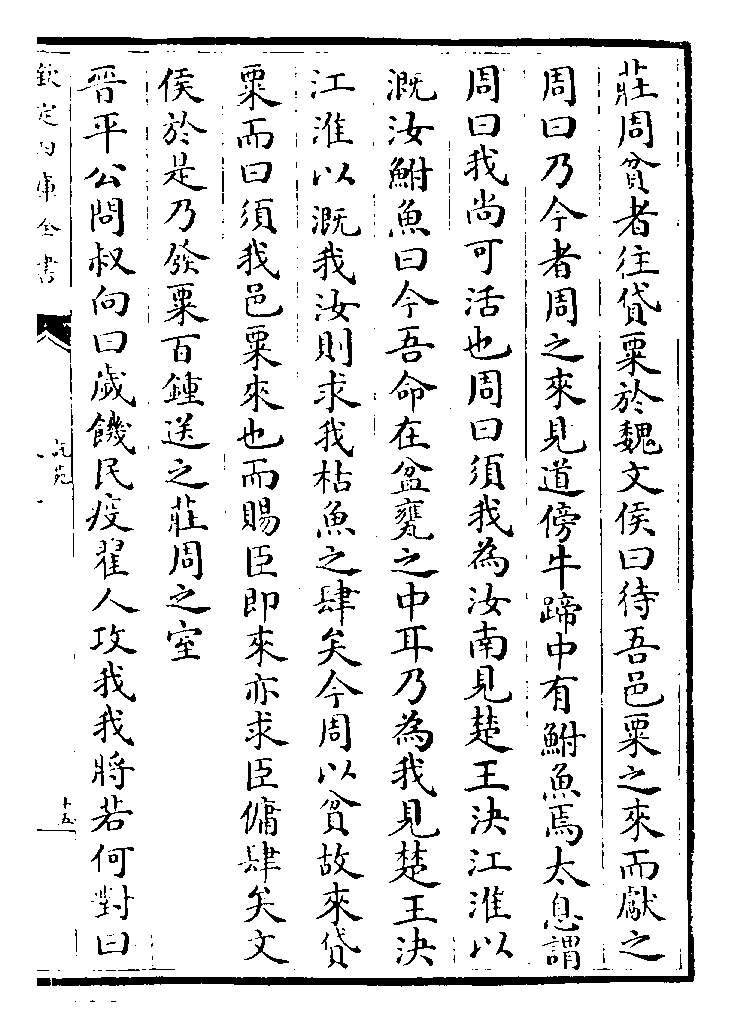 莊周貧者往貸粟於魏文侯曰待吾邑粟之來而獻之
周曰乃今者周之來見道傍牛蹄中有鮒魚焉太息謂
周曰我尚可活也周曰須我為汝南見楚王決江淮以
溉汝鮒魚曰今吾命在盆甕之中耳乃為我見楚王決
江淮以溉我汝則求我枯魚之肆矣今周以貧故來貸
粟而曰須我邑粟來也而賜臣即來亦求臣傭肆矣文
侯於是乃發粟百鍾送之莊周之室
晉平公問叔向曰歲饑民疫翟人攻我我將若何對曰
欽定四庫全書
說苑
十五